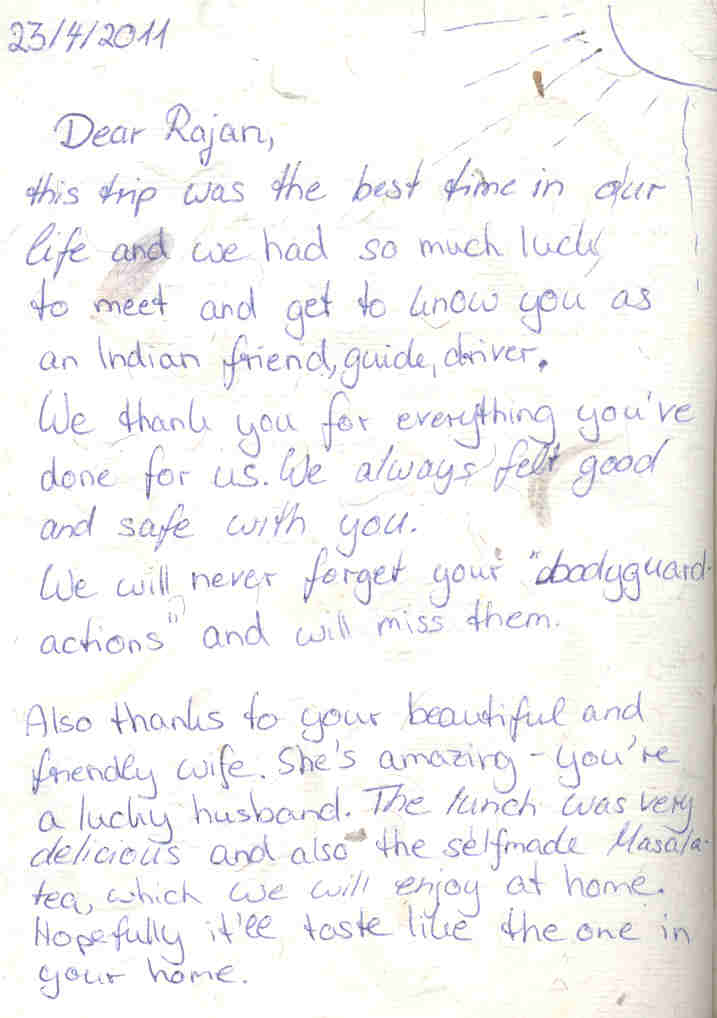 23/4/2011
Dear Rajan,
this trip was the best time in our
life and we had so much luck
to meet and get to know you as
an Indian friend, guide, driver.
We thank you for everything you've
done for us. We always felt good
and safe with you.
We will never forget your "bodyguard-
actions" and will miss them.
Also thanks to your beautiful and
friendly wife. She's amazing - you're
a lucky husband. The lunch was very
delicious and also the selfmade Masala-
tea, which we will enjoy at home.
Hopefully it'll taste like the one in
your home.